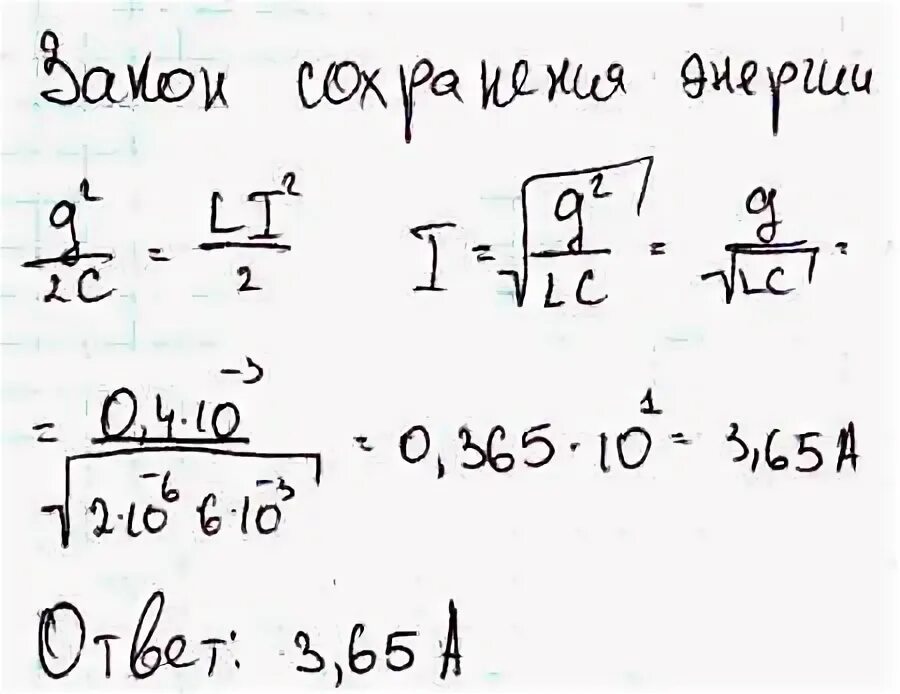 Закон сохранения энергии
g²/2C = LI²/2   I = √(g²/LC) = g/√(LC) =
= 0,4·10⁻³/√(2·10⁻⁶ 6·10⁻³) = 0,365·10¹ = 3,65 А
Ответ: 3,65 А